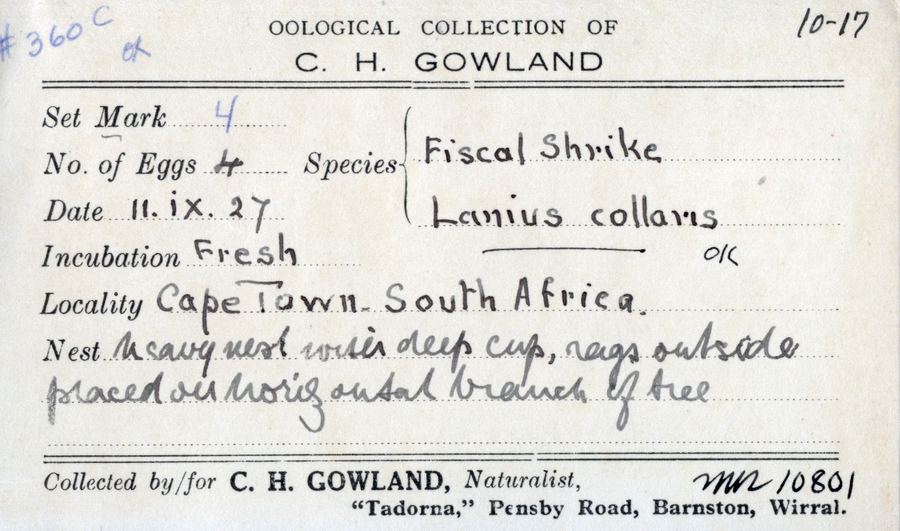 # 360 C
ok
OOLOGICAL COLLECTION OF
10-17
C. H. GOWLAND
Set Mark 4
No. of Eggs 4 Species Fiscal Shrike
Date 11. ix. 27 Lanius collaris
Incubation Fresh OK
Locality Cape Town. South Africa.
Nest heavy nest with deep cup, rags outside
placed on horizontal branch of tree
Collected by/for C. H. GOWLAND, Naturalist,
"Tadorna," Pensby Road, Barnston, Wirral.
10801